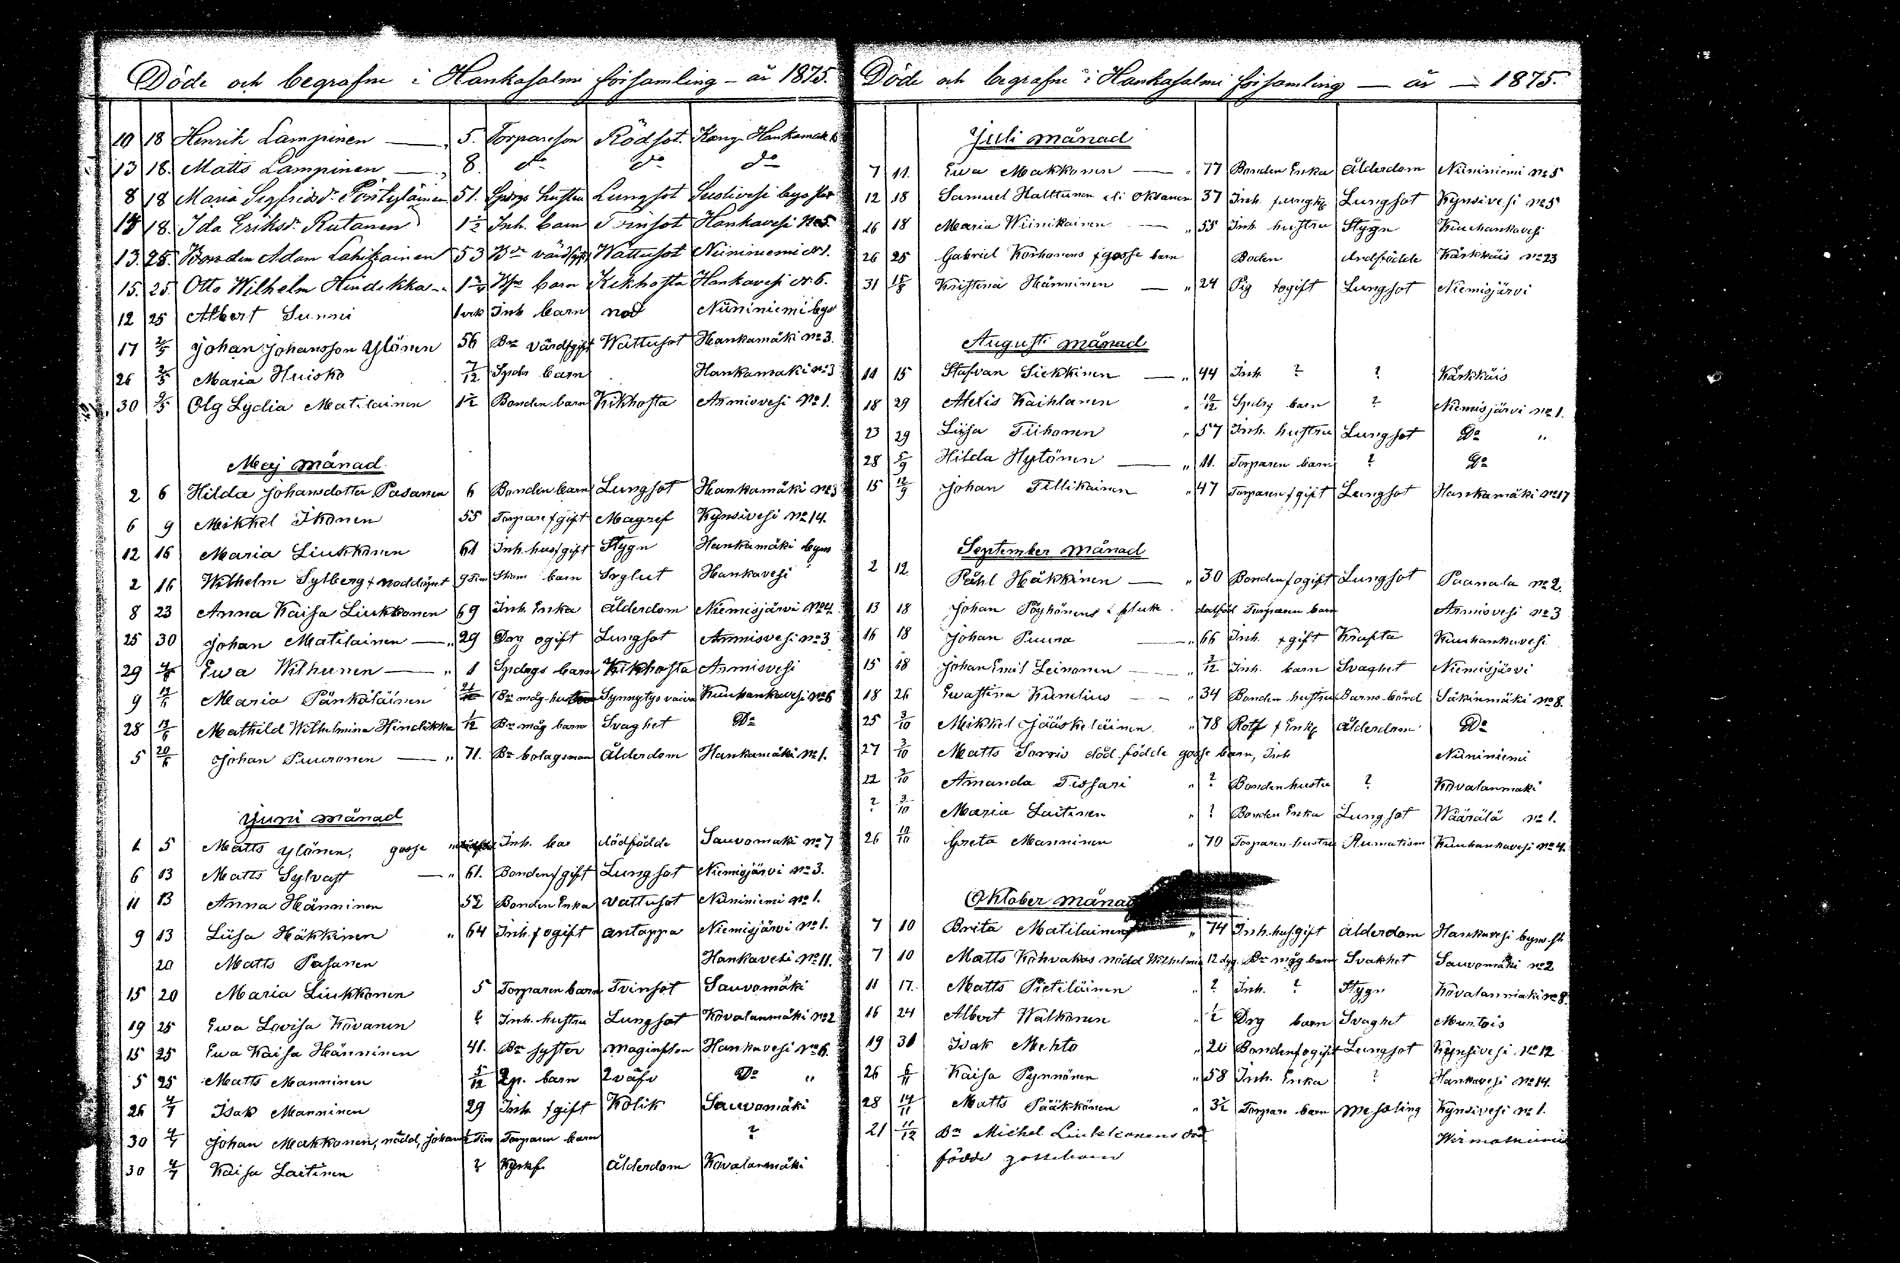 Döde och begrafne i Hankasalmi församling – år 1875.
10 18 Henrik Lampinen — 5. Torpareson Rödsot. Hankamäki
13 18. Matts Lampinen — 8. do do do
8 18 Maria Sigfridsdr 51. hustru Lungsot
18. Ida Eriksdr Rutanen 1½ Inh. barn Tvinsot Hankavesi No 5.
13. 25. Bonden Adam Lahikainen 53 Wattusot Niininiemi No 1.
15. 25. Otto Wilhelm Hindikka barn Kikhosta Hankavesi No 6.
12 25 Albert Sunni Inh barn nöd Niininiemi
17 2/5 Johan Johansson Ylönen 56 Bn värd gift Wattusot Hankamäki No 3.
26 2/5 Maria Huisko 7/12 barn Hankamäki No 3
30 9/5 Olg Lydia Matilainen 1½ Bonden barn Kikhosta Armisvesi No 1.
Maj månad
2 6 Hilda Johansdotter Pasanen 6 Bonden barn Lungsot Hankamäki No 3
6 9 Mikkel Ikonen 55 Torpare gift Magref Kynsivesi No 14.
12 16 Maria Liukkonen 61 Inh. hus gift Stygn Hankamäki
2 16 Wilhelm Sylberg barn Hankavesi
8 23 Anna Kaisa Liukkonen 69 Inh Enka Ålderdom Niemisjärvi No 4.
25 30 Johan Matilainen — 29 Drg ogift Lungsot Armisvesi No 3
29 Ewa Wilhunen — 1 barn Kikhosta Armisvesi
9 Maria Pänkäläinen Bn måg Synnytys vaiva Kuuhankavesi No 6
28 Mathild Wilhelmina Hindikka 1/12 Bn måg barn Svaghet Do
5 Johan Puuronen — 71. Bn bolagsman Ålderdom Hankamäki No 1.
Juni månad
1 5 Matts Ylönen, gosse Inh. dödfödde Sauvomäki No 7
6 13 Matts Sylvast — 61. Bonden gift Lungsot Niemisjärvi No 3.
11 13 Anna Hänninen 52 Bonden Enka Vattusot Niininiemi No 1.
9 13 Liisa Häkkinen 64 Inh. ogift Niemisjärvi No 1.
20 Matts Pasanen Hankavesi No 11.
15 20 Maria Liukkonen 5 Torparen barn Tvinsot Sauvomäki
19 25 Ewa Lovisa Kovanen ? Inh. hustru Lungsot Kovalanmäki No 2
15 25 Ewa Kaisa Hänninen 41. Bn syster Hankavesi No 6.
5 25 Matts Manninen 5/12 barn Do "
26 4/7 Isak Manninen 29 Inh gift Kolik Sauvomäki
30 4/7 Johan Makkonen, nödd, Johan Torparen barn ?
30 4/7 Kaisa Laitinen ? Ålderdom Kovalanmäki
Döde och begrafne i Hankasalmi församling — år — 1875.
Juli månad
7 11. Ewa Makkonen — 77 Bonden Enka Ålderdom Niininiemi No 5
12 18 Samuel Halttunen eli Oksanen 37 Inh. Lungsot Kynsivesi No 5
16 18 Maria Wiinikainen — 55 Inh hustru Stygn Kuuhankavesi
26 25 Gabriel Korhonens gosse barn Boden dödfödde Kärkkäis No 23
31 15/8 Kristina Hänninen — 24 Pig ogift Lungsot Niemisjärvi
Augusti månad
11 15 Stafvan Siekkinen — 44 Inh ? ? Kärkkäis
18 29 Aleksis Kaihlanen 10/12 barn ? Niemisjärvi No 1.
23 29 Liisa Tiihonen 57 Inh. hustru Lungsot Do "
28 5/9 Hilda Hytönen — 11. Torparen barn ? Do
15 12/9 Johan Tillikainen 47 Torparen gift Lungsot Hankamäki No 17
September månad
2 12 Påhl Häkkinen — 30 Bonden ogift Lungsot Paanala No 2.
13 18 Johan Pöyhönens Torparen barn Armisvesi No 3
16 18 Johan Puura — 66 Inh. gift Kräfta Kuuhankavesi
15 18 Johan Emil Leinonen 2/12 Inh. barn Svaghet Niemisjärvi
18 26 Ewastina Kumelius — 34 Bonden hustru Barns börd Säkinmäki No 8.
25 3/10 Mikkel Jääskeläinen 78 Rotf Enkg Ålderdom Do
27 3/10 Matts Sorvis död födde gosse barn, Inh Niininiemi
22 3/10 Amanda Tissari ? Bonden hustru ? Kovalanmäki
? 3/10 Maria Laitinen ? Bonden Enka Lungsot Wäärälä No 1.
26 10/10 Greta Manninen 70 Torparen hustru Rumatism Kuuhankavesi No 4.
Oktober månad
7 10 Brita Matilainen 74 Inh. hus gift Ålderdom Hankavesi
7 10 Matts Kohvakas nödd Wilhelmi 12 dyg. Bn måg barn Svakhet Sauvomäki No 2
11 17. Matts Pietiläinen ? Inh. ? Stygn Kovalanmäki No 8.
16 24 Albert Walkonen ½ Drg barn Svaghet Murtois
19 31 Isak Mehto 20 Bonden ogift Lungsot Kynsivesi No 12
26 6/11 Kaisa Pynnönen 58 Inh. Enka ? Hankavesi No 14.
28 14/11 Matts Pääkkönen 3½ Torpare barn Mesling Kynsivesi No 1.
21 11/12 Bn Michel Liukkonens död
födde gossebarn